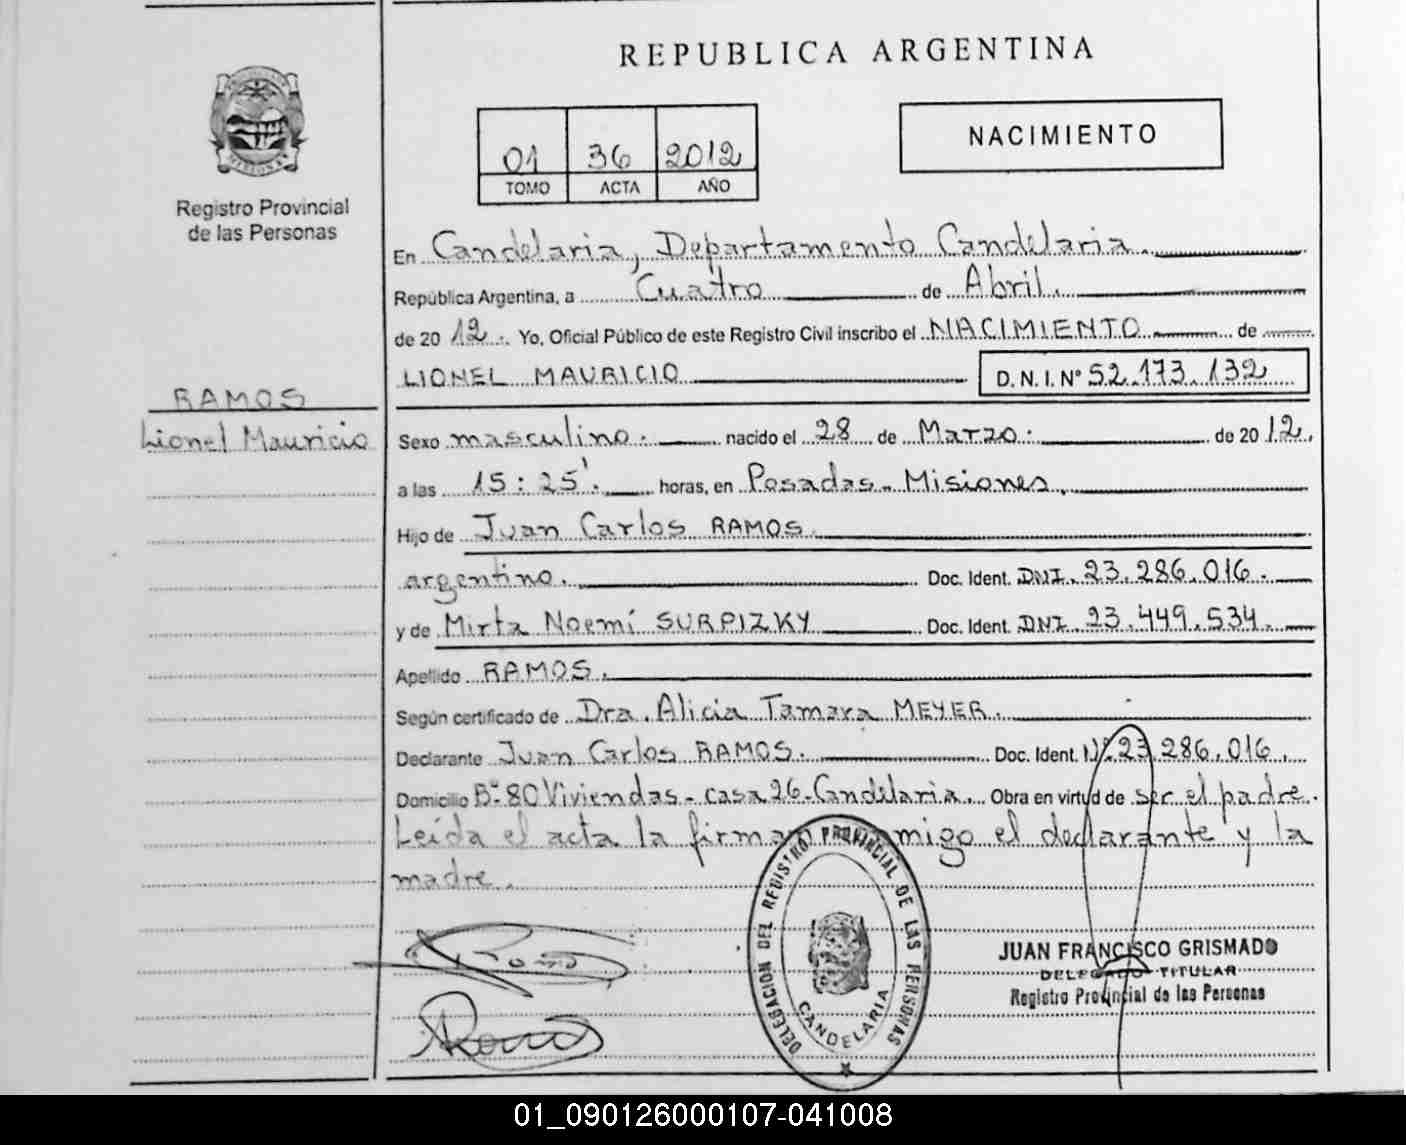 REPUBLICA ARGENTINA
NACIMIENTO
01 36 2012
TOMO ACTA AÑO
Registro Provincial
de las Personas
RAMOS
Lionel Mauricio
En Candelaria, Departamento Candelaria.
República Argentina, a Cuatro de Abril.
de 2012. Yo, Oficial Público de este Registro Civil inscribo el NACIMIENTO de
LIONEL MAURICIO D.N.I. N° 52.173.132
Sexo masculino. nacido el 28 de Marzo. de 2012.
a las 15:25'. horas, en Posadas - Misiones.
Hijo de Juan Carlos RAMOS.
argentino. Doc. Ident. DNI. 23.286.016.
y de Mirta Noemí SURPIZKY Doc. Ident. DNI. 23.449.534.
Apellido RAMOS.
Según certificado de Dra. Alicia Tamara MEYER.
Declarante Juan Carlos RAMOS. Doc. Ident. N° 23.286.016.
Domicilio B° 80 Viviendas - casa 26 - Candelaria. Obra en virtud de ser el padre.
Leída el acta la firman conmigo el declarante y la
madre.
DELEGACION DEL REGISTRO PROVINCIAL DE LAS PERSONAS
CANDELARIA
JUAN FRANCISCO GRISMADO
DELEGADO TITULAR
Registro Provincial de las Personas
01_090126000107-041008